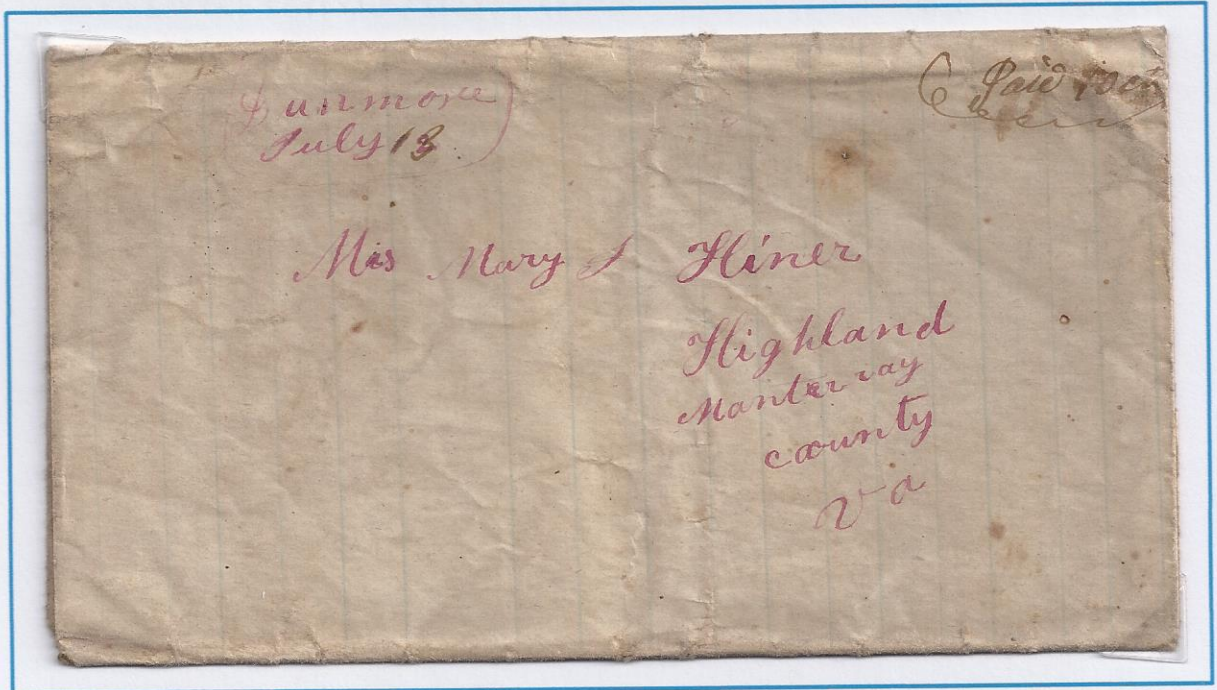 Dunmore
July 18
Paid 10 cts
Mis Mary J Hiner
Highland
Monterray
county
Va